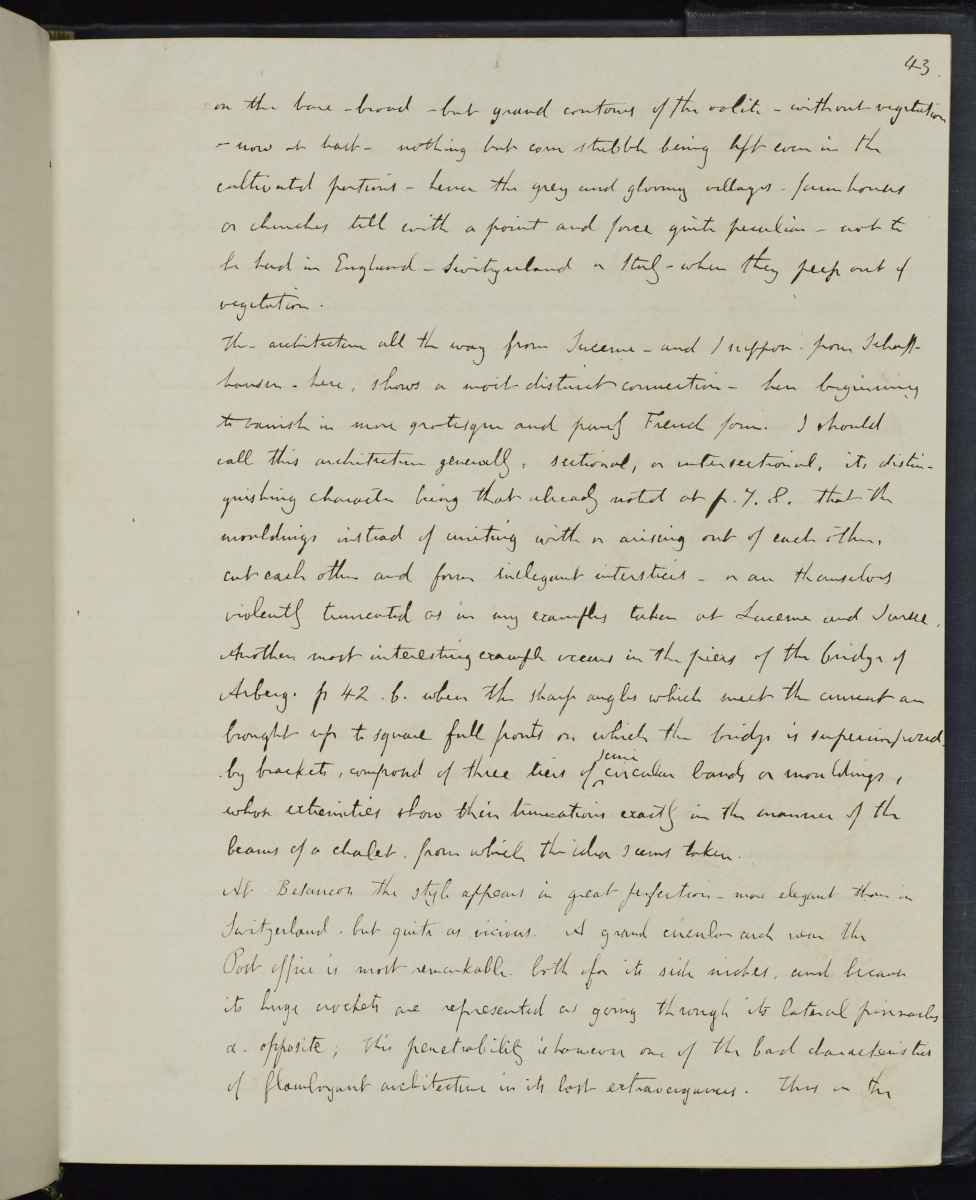 43.
on the bare - broad - but grand contours of the oolite - without vegetation
- now at least - nothing but corn stubble being left even in the
cultivated portions - hence the grey and gloomy villages - farmhouses
or churches tell with a point and force quite peculiar - not to
be had in England - Switzerland or Italy - when they peep out of
vegetation.
The architecture all the way from Lucerne - and I suppose from Schaff-
hausen - here, shows a most distinct connection - here beginning
to vanish in more grotesque and purely French form. I should
call this architecture generally, sectional, or intersectional, its distin-
guishing character being that already noted at p. 7. 8. that the
mouldings instead of uniting with or arising out of each other,
cut each other and form inelegant interstices - or are themselves
violently truncated as in my examples taken at Lucerne and Sursee.
Another most interesting example occurs in the piers of the bridge of
Arberg. p 42 .b. where the sharp angles which meet the current are
brought up to square full fronts on which the bridge is superimposed
by brackets, composed of three tiers of semi circular bands or mouldings,
whose extremities show their truncations exactly in the manner of the
beams of a chalet. from which the idea seems taken.
At Besancon the style appears in great perfection - more elegant than in
Switzerland. but quite as vicious. A grand circular arch near the
Post office is most remarkable. both for its side niches, and because
its huge crockets are represented as going through its lateral pinnacles
a. opposite; this penetrability is however one of the bad characteristics
of flamboyant architecture in its last extravagances. Thus in the